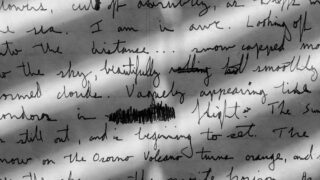 flowers, cut off abruptly, as drops in
the sea. I am in awe. Looking off
into the distance... snow capped mo
to the sky, beautifully smoothly
formed clouds. Vaguely appearing like
condors in flight. The sun
is still out, and is beginning to set. The
snow on the Osorno Volcano turns orange, and s
the horizon. As